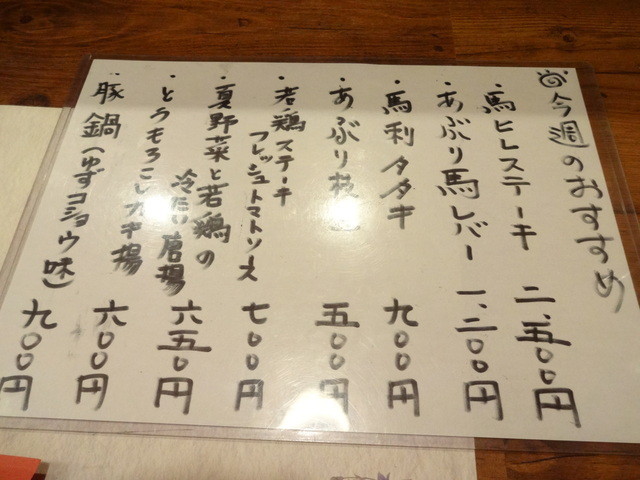 今週のおすすめ
・馬ヒレステーキ 二、五〇〇円
・あぶり馬レバー 一、二〇〇円
・馬刺タタキ 九〇〇円
・あぶり枝豆 五〇〇円
・若鶏ステーキ
フレッシュトマトソース 七〇〇円
・夏野菜と若鶏の
冷たい唐揚 六五〇円
・とうもろこしかき揚 六〇〇円
・豚鍋(ゆずコショウ味) 九〇〇円